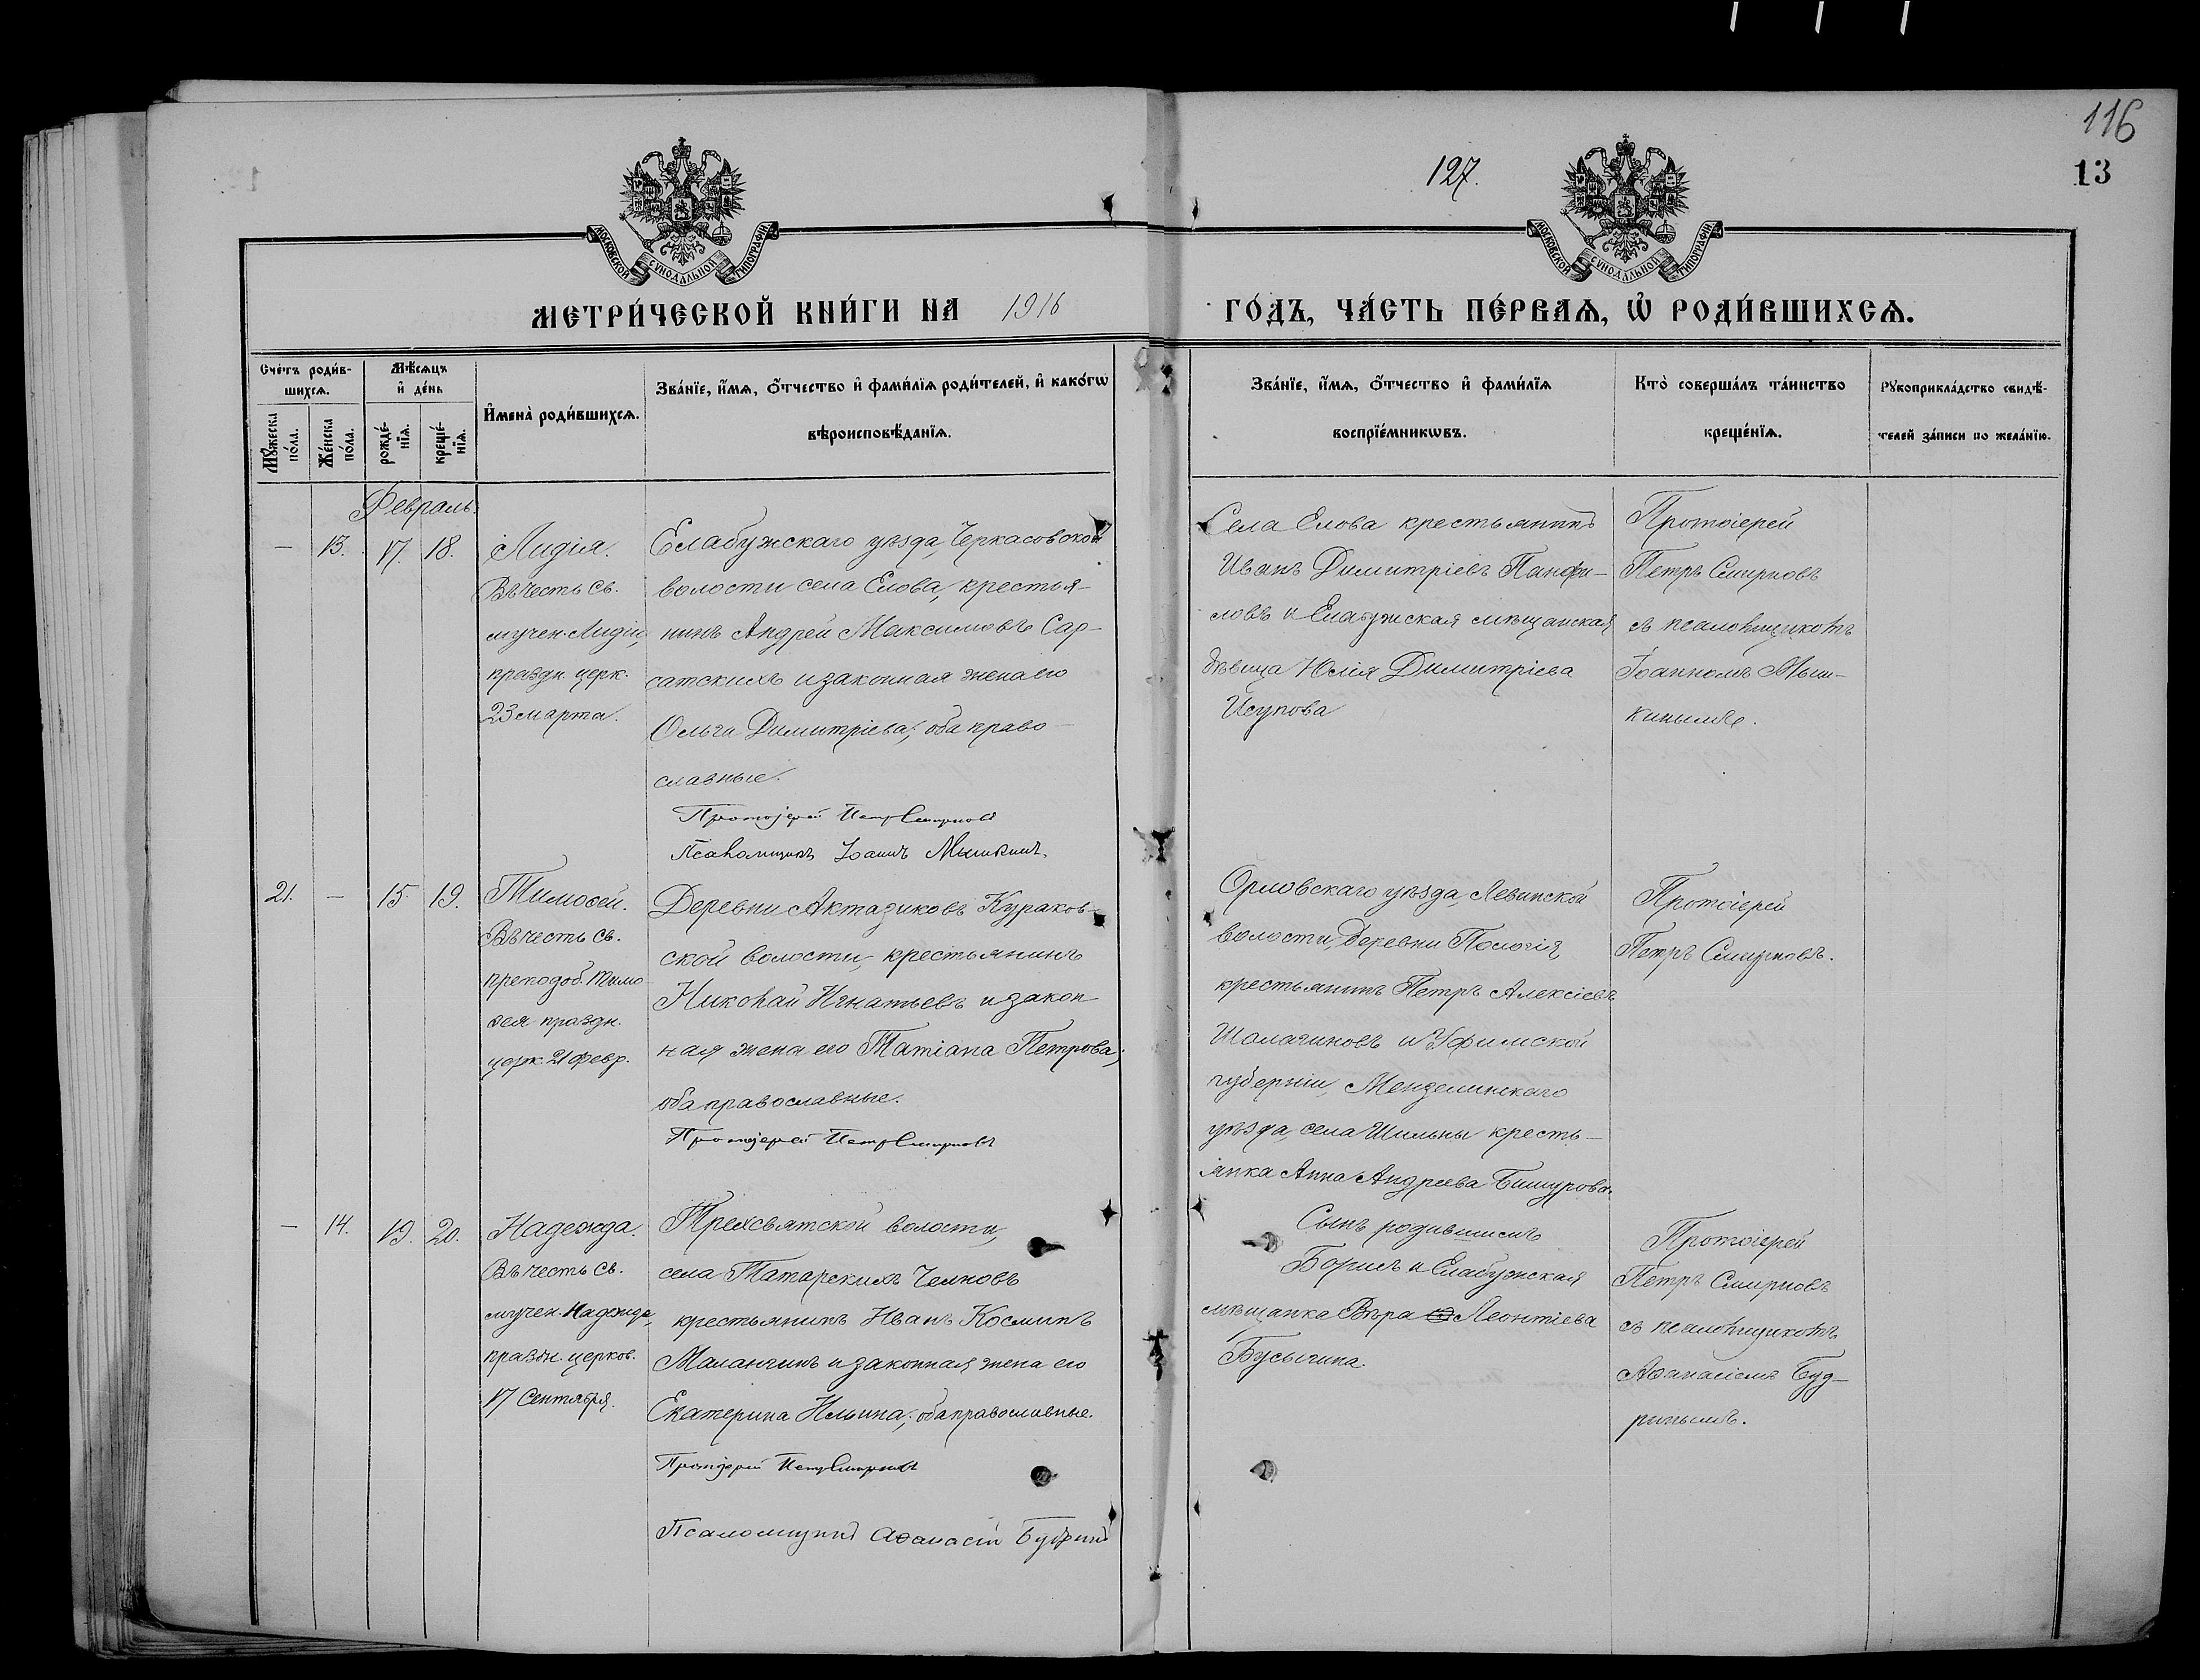 116
127.
13
МОСКОВСКОЙ СѴНОДАЛЬНОЙ ТИПОГРАФІИ
МОСКОВСКОЙ СѴНОДАЛЬНОЙ ТИПОГРАФІИ
МЕТРИ́ЧЕСКОЙ КНИ́ГИ НА 1916 ГО́ДЪ, ЧА́СТЬ ПЕ́РВАѦ, Ѡ҆ РОДИ́ВШИХСѦ.
Сче́тъ роди́в-
шихсѧ.
Мꙋ́жеска по́ла.
Же́нска по́ла.
Мѣ́сѧцъ
и҆ де́нь
рожде́-
нїѧ.
креще́-
нїѧ.
И҆мена̀ роди́вшихсѧ.
Зва́нїе, и҆́мѧ, ѻ҆́тчество и҆ фами́лїѧ роди́телей, и҆ како́гѡ
вѣроисповѣ́данїѧ.
Зва́нїе, и҆́мѧ, ѻ҆́тчество и҆ фами́лїѧ
воспрїе́мникѡвъ.
Кто̀ соверша́лъ та́инство
креще́нїѧ.
Рꙋкоприкла́дство свидѣ́-
телей за́писи по жела́нїю.
Февраль.
— 13. 17. 18.
Лидія.
Въ честь св.
мучен. Лидіи,
праздн. церк.
23 марта.
Елабужскаго уѣзда, Черкасовской
волости села Елова, крестья-
нинъ Андрей Максимовъ Сар-
сатскихъ и законная жена его
Ольга Димитріева; оба право-
славные.
Протоіерей Петръ Смирновъ
Псаломщикъ Іоаннъ Мышкинъ.
Села Елова крестьянинъ
Иванъ Димитріевъ Панфи-
ловъ и Елабужская мѣщанская
дѣвица Юлія Димитріева
Исупова
Протоіерей
Петръ Смирновъ
съ псаломщикомъ
Іоанномъ Мыш-
кинымъ.
21. — 15. 19.
Тимоѳей.
Въ честь св.
преподоб. Тимо
ѳея праздн.
церк. 21 февр.
Деревни Актазиковъ Кураков-
ской волости, крестьянинъ
Николай Игнатьевъ и закон
ная жена его Татіана Петрова;
оба православные.
Протоіерей Петръ Смирновъ
Орловскаго уѣзда, Левинской
волости, деревни
крестьянинъ Петръ Алексіевъ
Шалагиновъ и Уфимской
губерніи, Мензелинскаго
уѣзда, села Шильны кресть-
янка Анна Андреева Бишурова.
Протоіерей
Петръ Смирновъ.
— 14. 19. 20.
Надежда.
Въ честь св.
мучен. Надежды,
праздн. церков.
17 Сентября.
Трехсвятской волости,
села Татарскихъ Челновъ
крестьянинъ Иванъ Косминъ
Маланчинъ и законная жена его
Екатерина Ильина; оба православные.
Протоіерей Петръ Смирновъ
Псаломщикъ Аѳанасій Будринъ
Сынъ родившихъ
Борисъ и Елабужская
мѣщанка Вѣра Леонтіева
Бусыгина.
Протоіерей
Петръ Смирновъ
съ псаломщикомъ
Аѳанасіемъ Буд-
ринымъ.